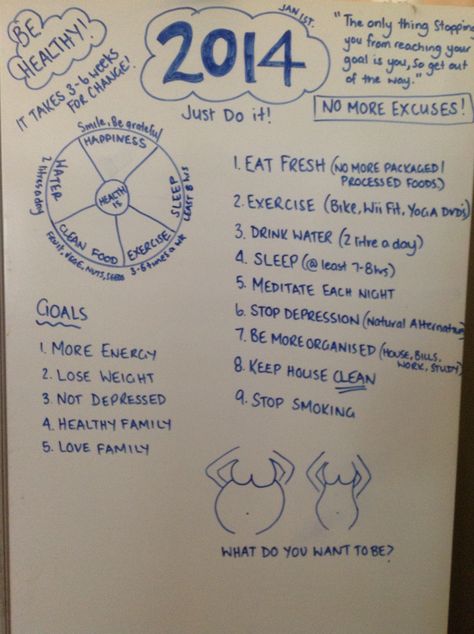 BE
HEALTHY!
IT TAKES 3-6 weeks
FOR CHANGE!
JAN 1ST.
2014
Just Do it!
"The only thing stopping
you from reaching your
goal is you, so get out
of the way."
NO MORE EXCUSES!
Smile, Be grateful
HAPPINESS
SLEEP
LEAST 8 hrs
EXERCISE
3-6 times a wk
CLEAN FOOD
FRUIT, VEGE, NUTS, SEEDS
WATER
2 litres a day
HEALTH
IS
1. EAT FRESH (NO MORE PACKAGED/
PROCESSED FOODS)
2. EXERCISE (Bike, Wii Fit, YOGA DVD's)
3. DRINK WATER (2 litre a day)
4. SLEEP (@ least 7-8hrs)
5. MEDITATE EACH NIGHT
6. STOP DEPRESSION (Natural Alternative)
7. BE MORE ORGANISED (HOUSE, BILLS,
WORK, STUDY)
8. KEEP HOUSE CLEAN
9. STOP SMOKING
GOALS
1. MORE ENERGY
2. LOSE WEIGHT
3. NOT DEPRESSED
4. HEALTHY FAMILY
5. LOVE FAMILY
WHAT DO YOU WANT TO BE?